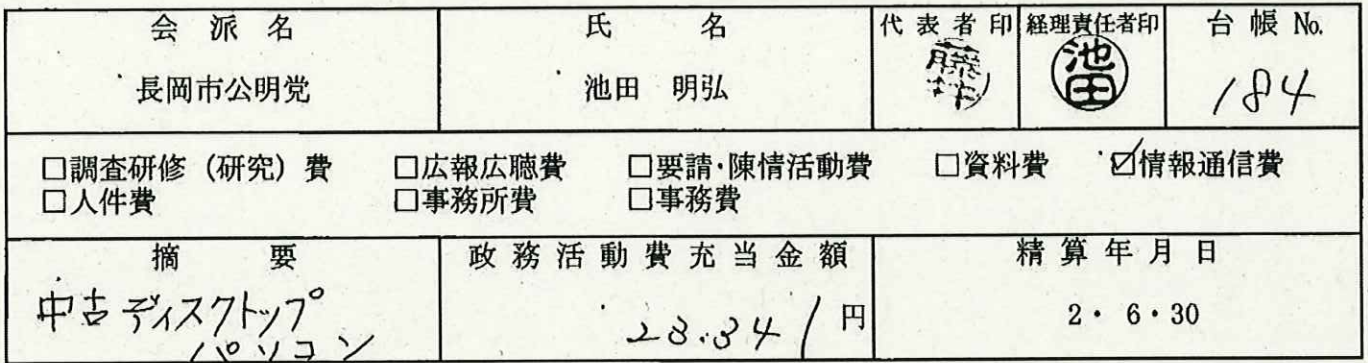 会派名 氏名 代表者印 経理責任者印 台帳No.
長岡市公明党 池田 明弘 池田 184
□調査研修（研究）費 □広報広聴費 □要請・陳情活動費 □資料費 ☑情報通信費
□人件費 □事務所費 □事務費
摘要 政務活動費充当金額 精算年月日
中古ディスクトップ 23.341円 2・6・30
パソコン